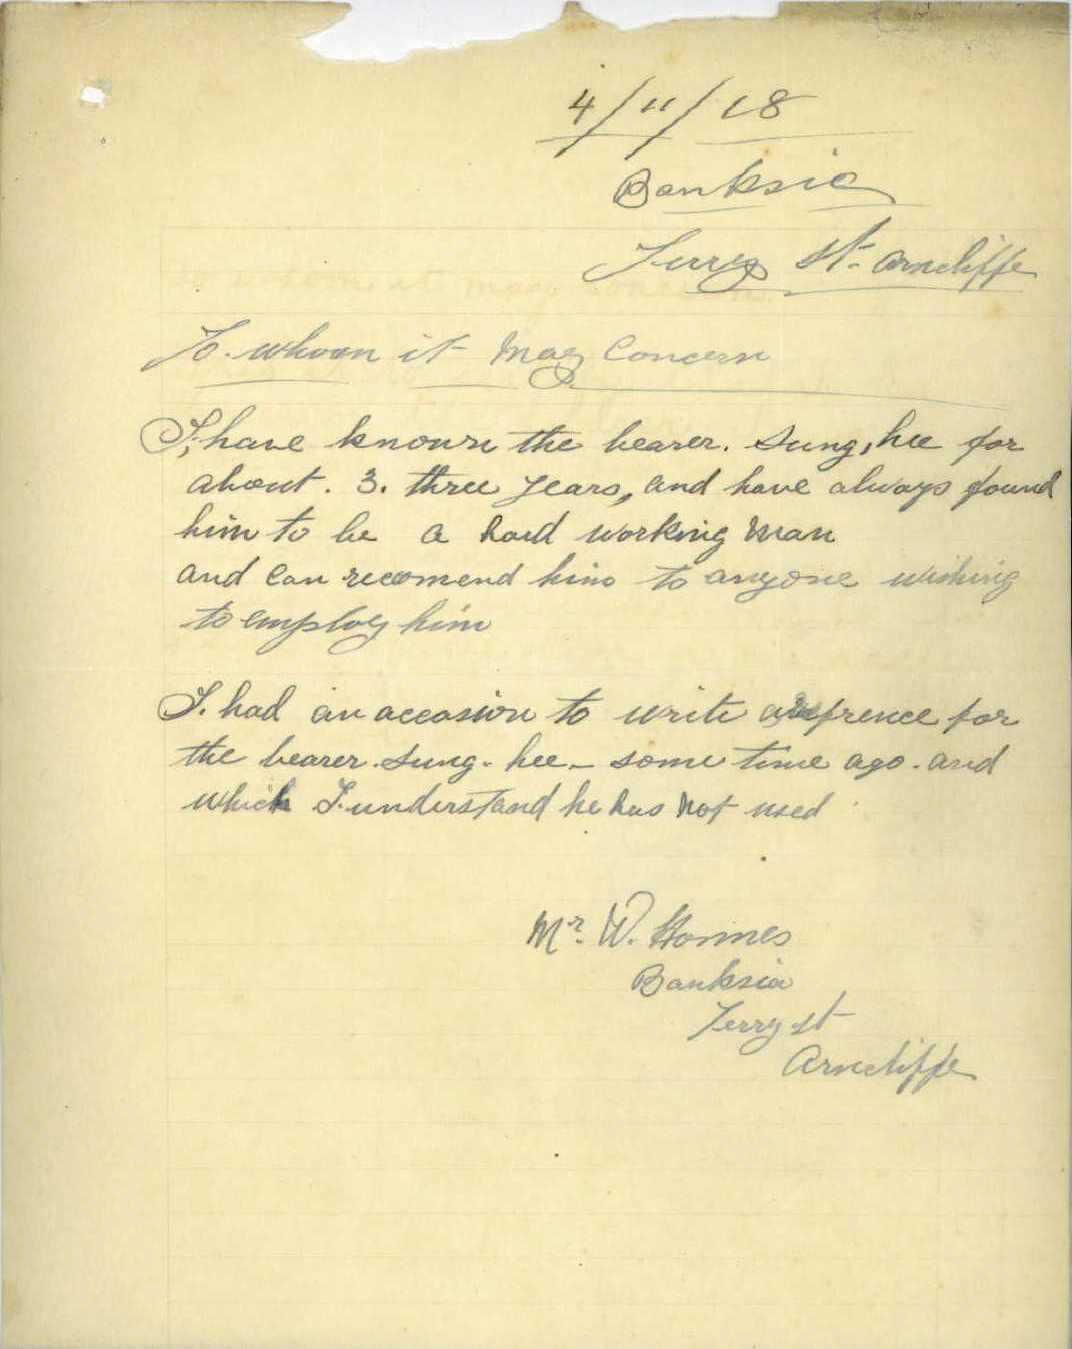 4/11/18
Banksia
Terry St. Arncliffe
To. whom it May Concern
I, have known the bearer. Sung, hee for
about. 3. three years, and have always found
him to be a hard working Man
and can recomend him to anyone wishing
to employ him
I. had an accasion to write a refrence for
the bearer. Sung. hee - some time ago. and
which I. understand he has Not used
Mr. W.
Banksia
Terry st
Arncliffe